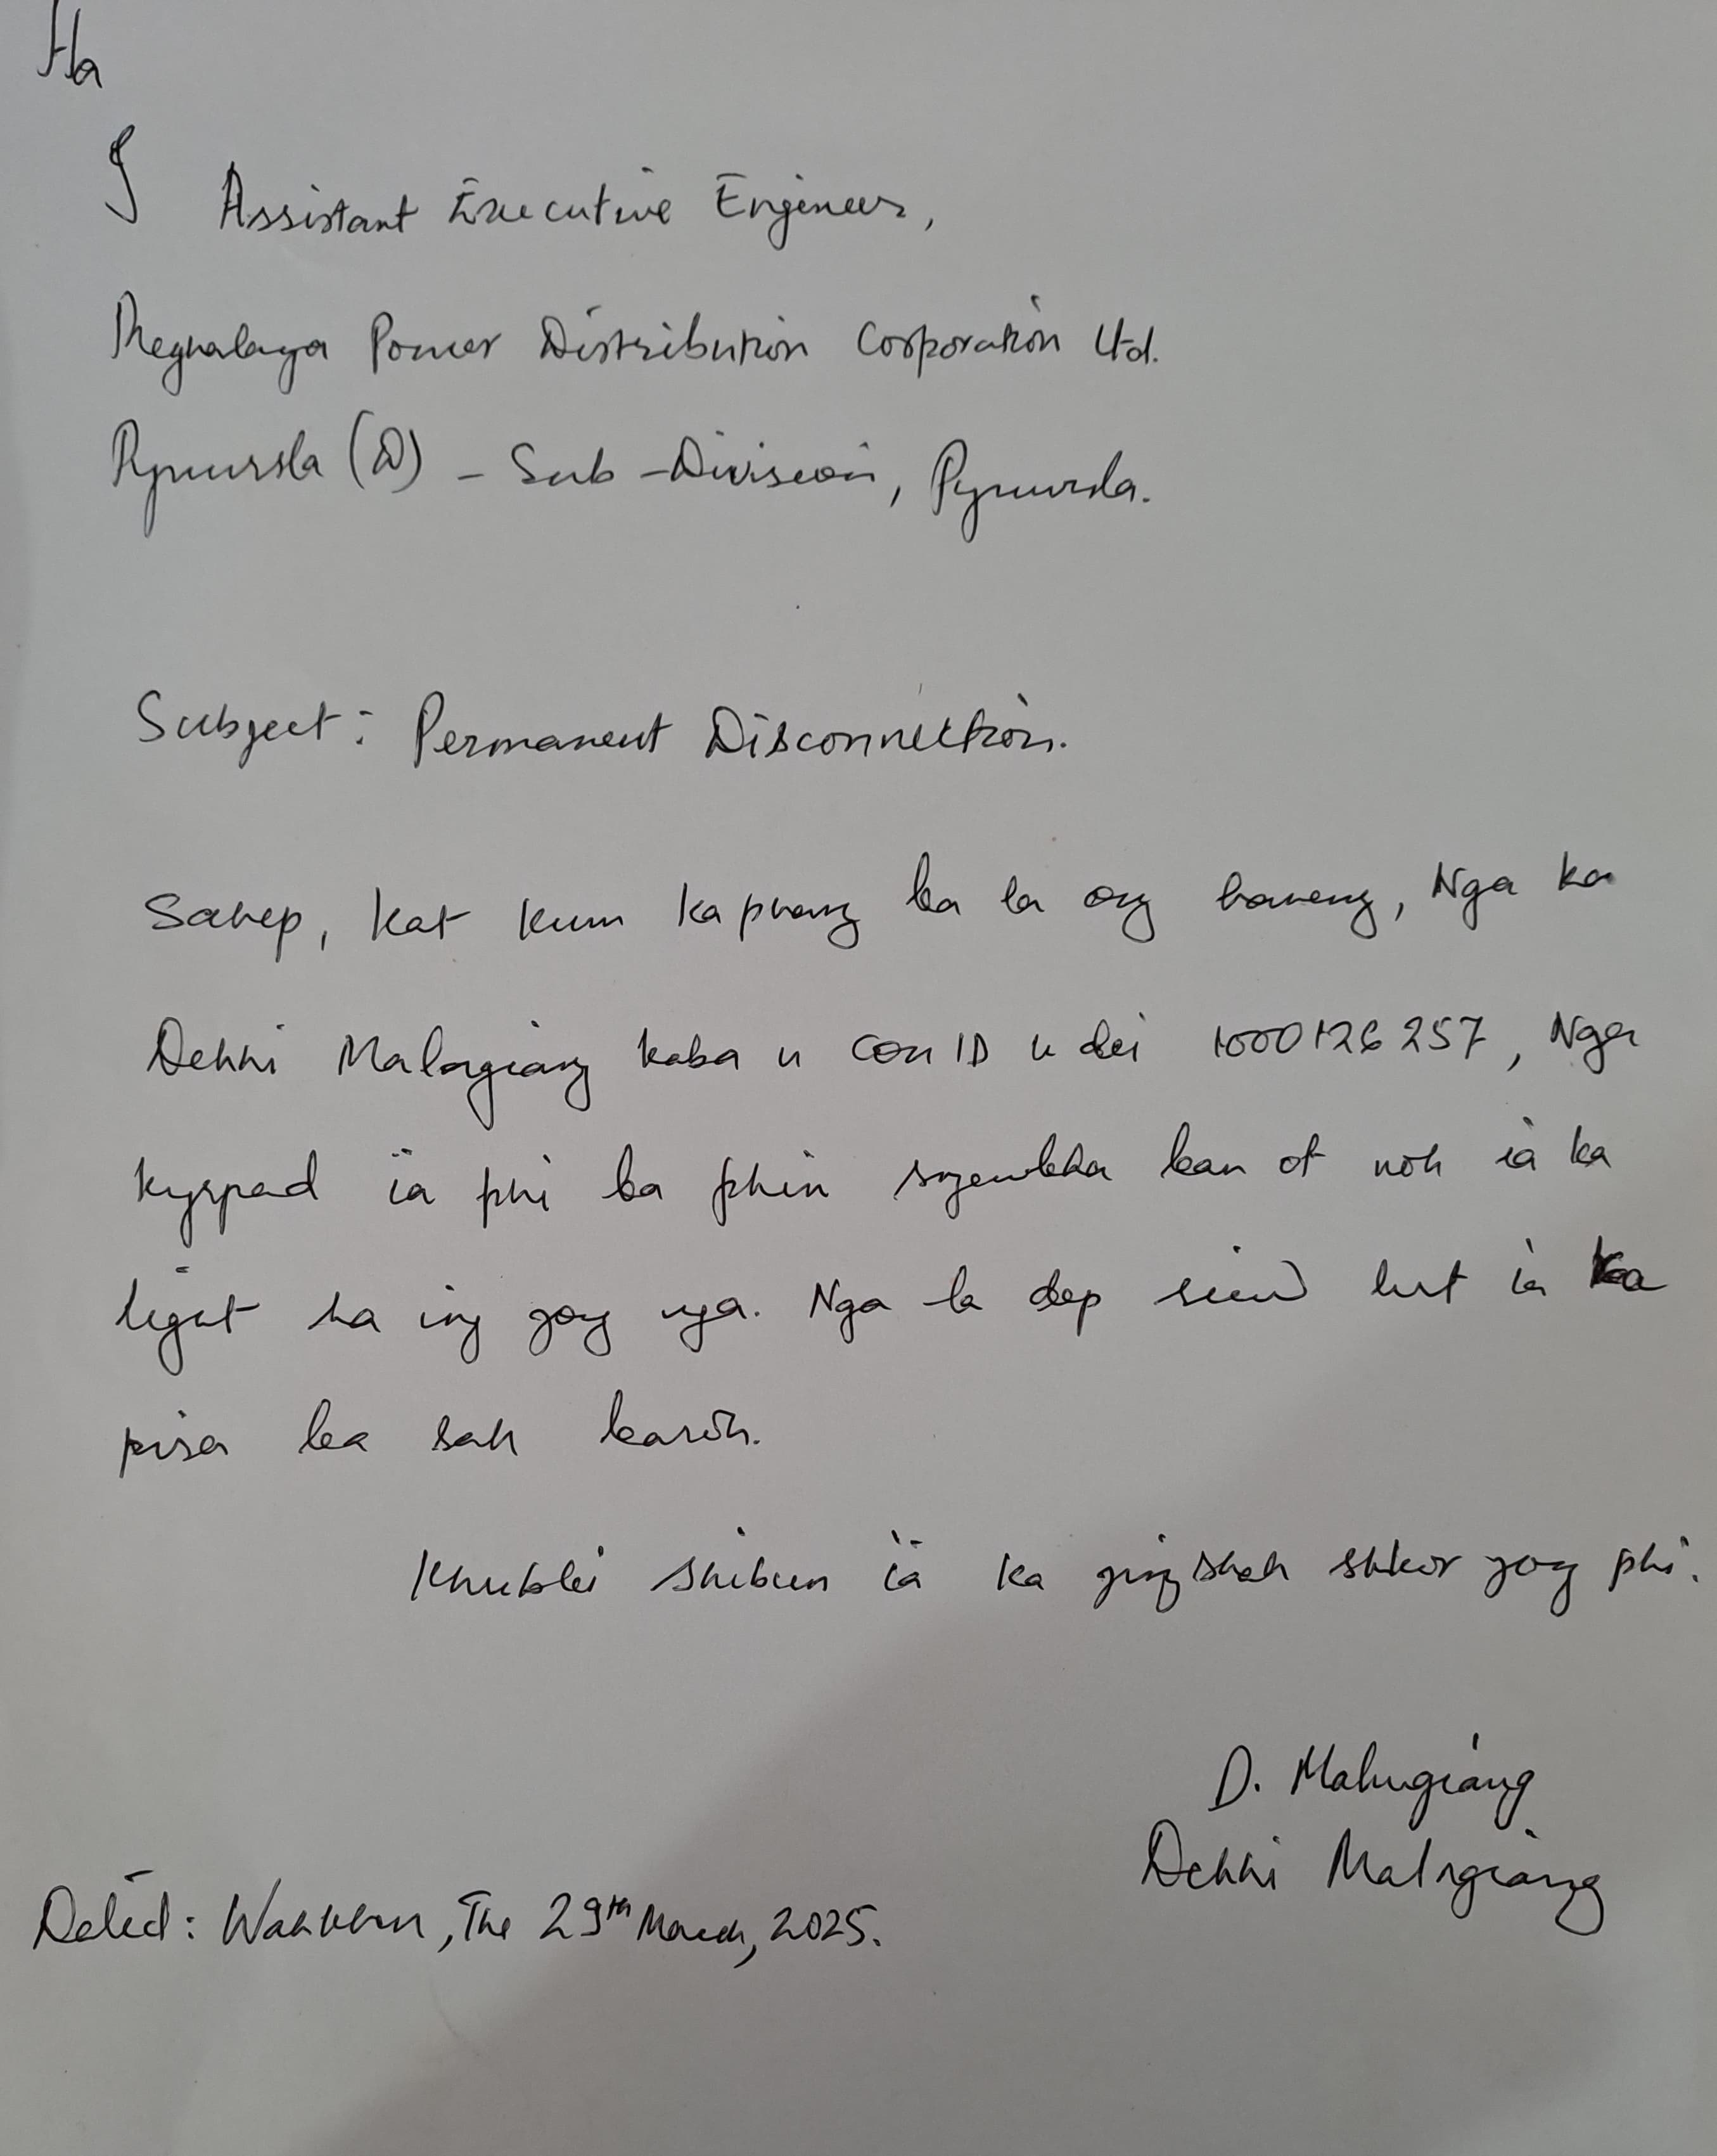 Ha
I Assistant Executive Engineer,
Meghalaya Power Distribution Corporation Ltd.
Pynursla (D) - Sub-Division, Pynursla.
Subject: Permanent Disconnection.
Sahep, kat kum ka phang ba la ong haneng, Nga ka
Dehhi Malngiang kaba u Con ID u dei 1000126257, Nga
kyrpad ïa phi ba phin sngewbha ban ot noh ïa ka
ligut ha ing jong nga. Nga la dep siew lut ïa ka
pisa ba sah baroh.
Khublei shibun ïa ka jingshah shkor jong phi.
D. Malngiang
Dehhi Malngiang
Dated: Wahkhen, The 29th March, 2025.